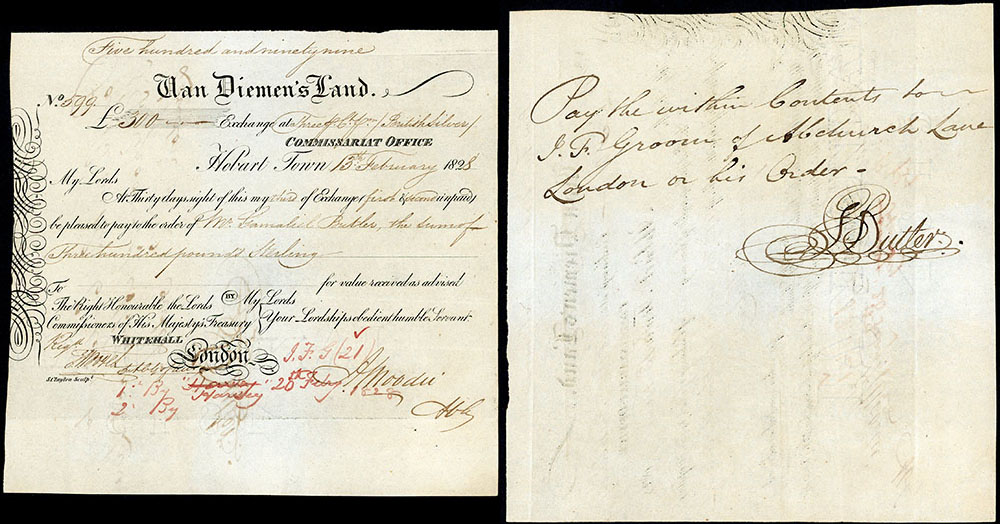 Five hundred and ninety nine
Van Diemen's Land.
No. 599
£300 Exchange at Three P Ct Pm British Silver
COMMISSARIAT OFFICE
Hobart Town 15th February 1828
My Lords
At Thirty days sight of this my third of Exchange (first & second unpaid)
be pleased to pay to the order of Mr. Butler, the sum of
Three hundred pounds Sterling
for value received as advised
To
The Right Honourable the Lords BY My Lords
Commissioners of His Majesty's Treasury Your Lordships obedient humble Servant
WHITEHALL
London
Regd
J. F. G (21)
Moodie
1 By Harvey 20th Feby. 1828
Harvey
2 By
Pay the within Contents to
J. F. Groom of Abchurch Lane
London or his Order -
J Butler.